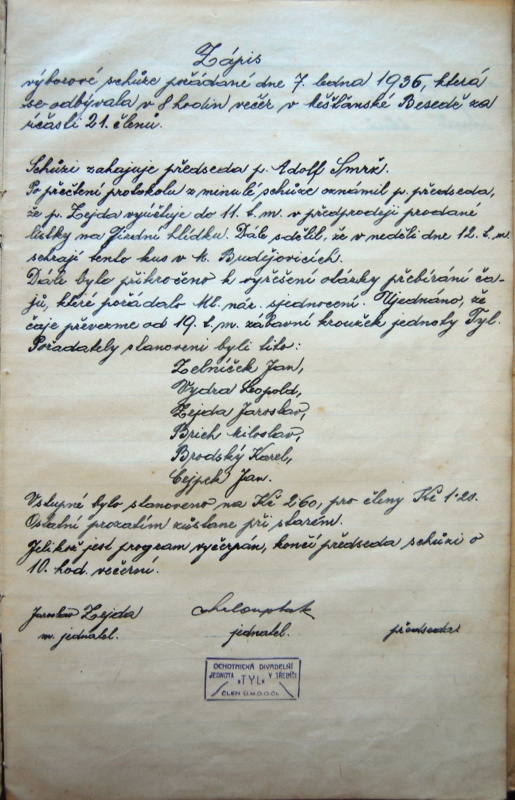 Zápis
výborové schůze pořádané dne 7. ledna 1936, která
se odbývala v 8 hodin večer v Měšťanské Besedě za
účasti 21. členů.
Schůzi zahajuje předseda p. Adolf Smrž.
Po přečtení protokolu z minulé schůze oznámil p. předseda,
že p. Zejda vyúčtuje do 11. t. m. v předprodeji prodané
lístky na Jízdní hlídku. Dále sdělil, že v neděli dne 12. t. m.
sehrají tento kus v Č. Budějovicích.
Dále bylo přikročeno k vyřčení otázky přebírání ča-
jů, které pořádalo Ml. nár. sjednocení. Ujednáno, že
čaje převezme od 19. t. m. zábavní kroužek jednoty Tyl.
Pořadately stanoveni byli tito:
Zelníček Jan,
Vydra Leopold,
Zejda Jaroslav,
Brich Miloslav,
Brodský Karel,
Cejpek Jan.
Vstupné bylo stanoveno na Kč 2·60, pro členy Kč 1·20.
Ostatní prozatím zůstane při starém.
Jelikož jest program vyčerpán, končí předseda schůzi o
10. hod. večerní.
Jaroslav Zejda
m. jednatel. jednatel. předseda
OCHOTNICKÁ DIVADELNÍ
JEDNOTA „TYL“ V TŘEBÍČI
ČLEN Ú.M.D.O.Č.